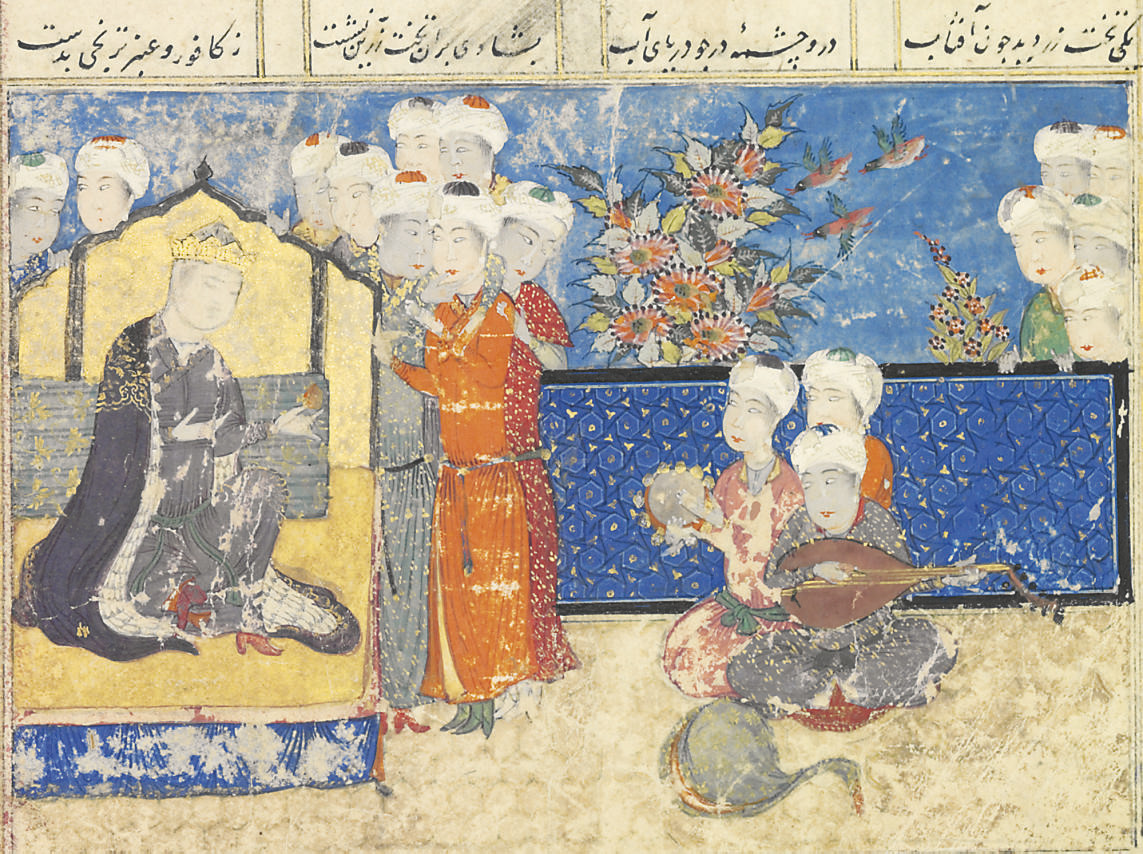 یکی تخت زر دید چون آفتاب
درو چشمهٔ در چو دریای آب
بشادی بران تخت زرین نشست
ز کافور و عنبر ترنجی بدست